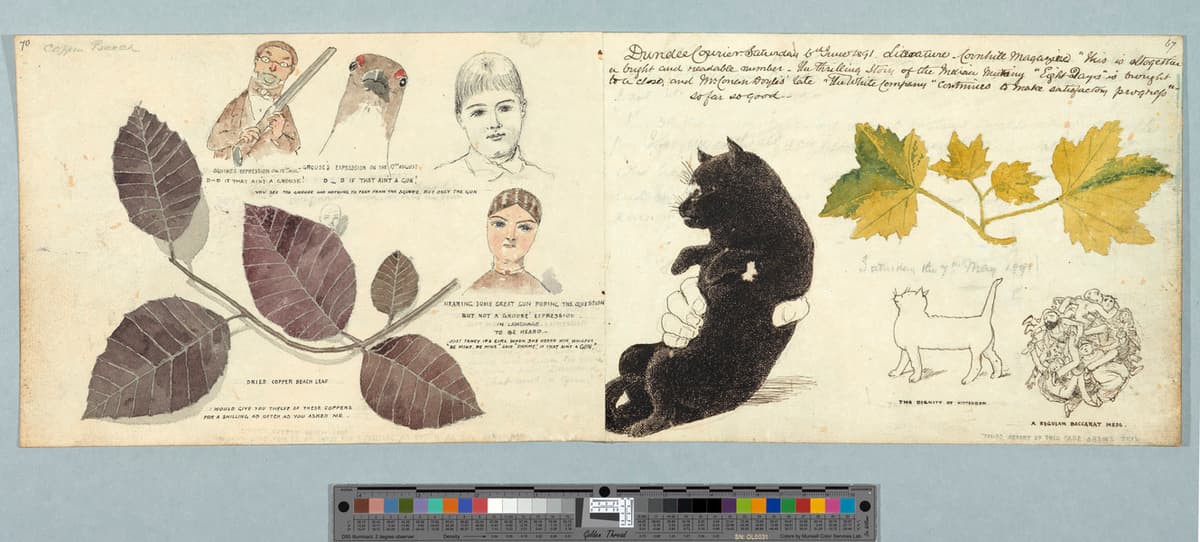 70
Copper Beach
SQUIRE'S EXPRESSION ON 12TH AUG
D—D IT THAT AINT A GROUSE!
GROUSE'S EXPRESSION ON THE 12TH AUGUST
D—D IF THAT AINT A GUN!
YOU SEE THE GROUSE HAD NOTHING TO FEAR FROM THE SQUIRE, BUT ONLY THE GUN
HEARING SOME GREAT GUN POPING THE QUESTION
BUT NOT A "GROUSE" EXPRESSION
IN LANGUAGE
TO BE HEARD.—
JUST FANCY ITS GIRL WHEN SHE HEARD HIM WHISPER
"BE MINE, BE MINE" SAID IF THAT AINT A GUN."
DRIED COPPER BEACH LEAF
I WOULD GIVE YOU TWELVE OF THESE COPPERS
FOR A SHILLING AS OFTEN AS YOU ASKED ME.
67
Dundee Courier Saturday 6th June 1891. Literature. Cornhill Magazine "This is altogether
a bright and readable number. The thrilling story of the Meean Meeting "Eight Days" is brought
to a close, and Mr Conan Doyle's tale "The White Company" continues to make satisfactory progress"—
so far so good—
Saturday the 7th May 1891
THE DIGNITY OF KITTENDOM
A REGULAR BACCARAT MESS.
REPORT OF THIS CASE
D50 Illuminant, 2 degree observer
Density
Golden Thread
SN: OL0031
Colors by Munsell Color Services Lab